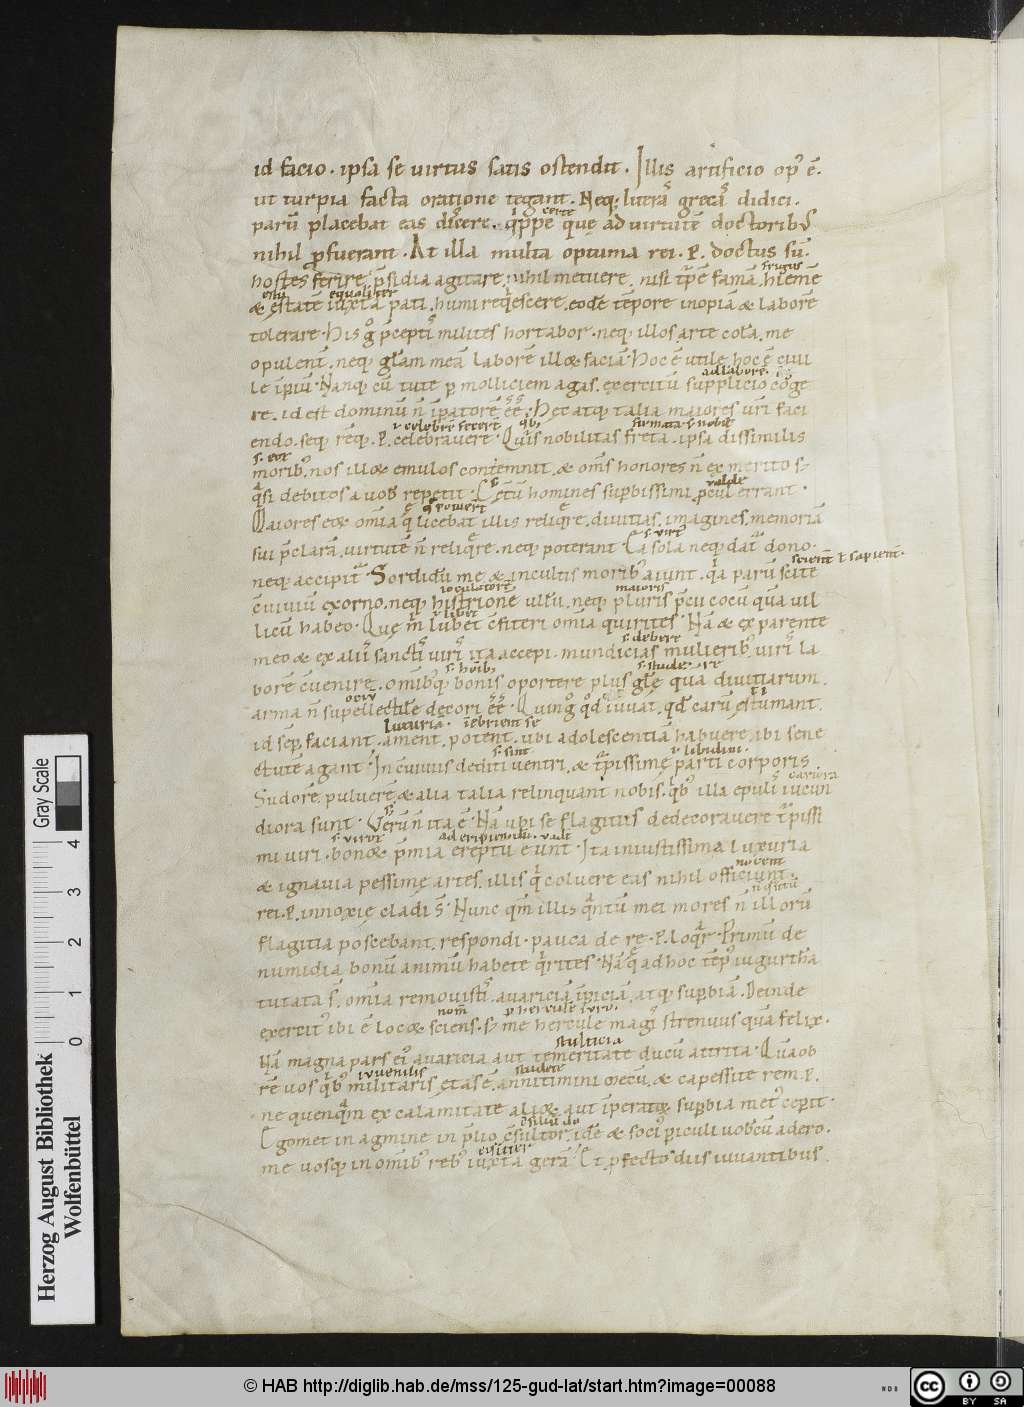 id facio. ipsa se uirtus satis ostendit. Illis artificio op᾽ ē.
ut turpia facta oratione tegant. Neq; litterā grecā didici.
parū placebat eas discere. quippe que ad uirtutē doctorib᷒
certe
nihil ꝓfuerant. At illa multa optuma rei. p. doctus sū.
hostes ferire, p̄sidia agitare, nihil metuere, nisi t̄pē famā, hiemē
frigus
& estatē iuxta pati, humi reqescere, eodē tēpore inopiā & laborē
estū equaliter
tolerare. His g̊ p̄ceptis milites hortabor. neq; illos arte colā, me
opulent̄. neq; gl̄am meā laborē illoꝝ faciā. Hoc ē utile, hoc ē ciui
le īpiū. Nanq; cū tute p molliciem agas. exercitū supplicio coge
ad laborē.
re. id est dominū n̄ īpatorē ēē. Hec atq; talia maiores uri faci
endo. seq; rēq;. p. celebrauere. Quis nobilitas freta. ipsa dissimilis
celebrē fecert
morib᷒. nos illoꝝ emulos contemnit. & om̄s honores n̄ ex merito s;
q̄si debitos a uob᷒ repetit. Cetū homines supbissimi pcul errant.
ualde
Maiores eoꝝ omia q̄ licebat illis reliqre. diuitias. imagines. memoriā
sui p̄clarā. uirtutē n̄ reliqre. neq; poterant. Ea sola neq; dat᷒ dono.
s. uirt᷒
neq; accipit᷒. Sordidū me & incultis morib᷒ aiunt. qa parū scite
scient̄ ł sapient̄.
c̄uiuiū exorno. neq; histrionē ullū. neq; pluris p̄cii cocū quā uil
ioculatorē maioris
licū habeo. Que m̄ lubet c̄fiteri omia quirites. Nā & ex parente
ł libet
meo & ex aliis sanctis uiris ita accepi. mundicias mulierib᷒. uiris la
s. debere
borē c̄uenire. omib᷒q; bonis oportere plus gl̄e qua diuitiarum.
arma n̄ supellectilē decori ēē. Quin g̊ qd iuuat. qd carū estumant.
id sep faciant. ament. potent. ubi adolescentiā habuere. ibi sene
luxuriā. inebrient se
ctute agant. In c̄uiuiis dediti uentri. & t̄pissimę parti corporis.
s. sint ł libidini.
Sudorē. puluerē. & alia talia relinquant nobis. qb᷒ illa epulis iucun
diora sunt. Verū n̄ ita ē. Nā ubi se flagitiis dedecorauere t̄pissi
mi uiri. bonoꝝ p̄mia ereptū eunt. Ita iniustissima luxuria
& ignauia pessimę artes. illis q̄ coluere eas nihil officiunt.
nocent
rei. p. innoxię cladi s̄. Nunc qm̄ illis q̄ntū mei mores n̄ illorū
flagitia poscebant. respondi. pauca de re. p. loqr. Primū de
numidia bonū animū habete qrites. Nā q̄ ad hoc tēp᷒ iugurthā
tutata s̄. omia remouistis. auariciā īpiciā. atq; supbiā. Deinde
exercit᷒ ibi ē locoꝝ sciens. s; me hercule magis strenuus quā felix.
Nā magna pars ei᷒ auaricia aut temeritate ducū attrita. Quā ob
stulticia
rē uos qb᷒ militaris etas ē. annitimini mecū. & capessite rem. p.
iuuenilis studete
ne quenq̄m ex calamitate alioꝝ aut īperatoꝝ supbia met᷒ ceperit.
Egomet in agmine in p̄lio c̄sultor. idē & soci᷒ piculi uobcū adero.
me uosq; in omib᷒ reb᷒ iuxta gerā. Et pfecto diis iuuantibus.
Herzog August Bibliothek
Wolfenbüttel
Gray Scale
0 1 2 3 4
© HAB http://diglib.hab.de/mss/125-gud-lat/start.htm?image=00088
cc BY SA